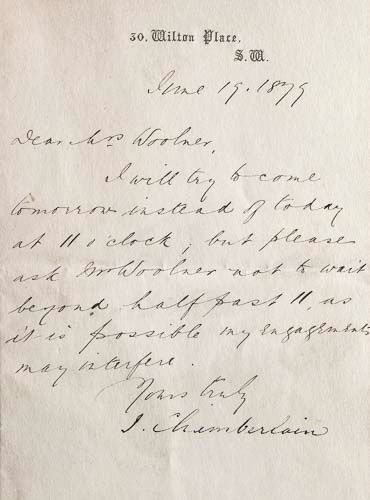 30, Wilton Place,
S.W.
June 19. 1879
Dear Mrs Woolner,
I will try to come
tomorrow instead of today
at 11 o'clock, but please
ask Mr Woolner not to wait
beyond half past 11, as
it is possible my engagements
may interfere.
Yours truly
J. Chamberlain